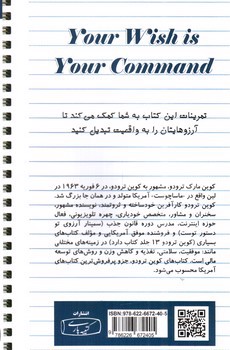 Your Wish is
Your Command
تمرینات این کتاب به شما کمک می کند تا
آرزوهایتان را به واقعیت تبدیل کنید
کوین مارک ترودو، مشهور به کوین ترودو، در ۶ فوریه ۱۹۶۳ در
لین واقع در «ماساچوست» آمریکا متولد و در همان جا بزرگ شد.
کوین ترودو کارآفرین خودساخته و ثروتمند، نویسنده مشهور،
سخنران و مشاور، متخصص خودیاری، چهره تلویزیونی، فعال
حوزه اینترنت، مدرس دوره قانون جذب (سمینار آرزوی تو
دستور توست) و فروشنده موفق آمریکایی و مؤلف کتاب‌های
بسیاری (کوین ترودو ۱۳ جلد کتاب دارد) در زمینه‌های مختلفی
مانند: موفقیت، سلامتی، تغذیه و کاهش وزن و روش‌های توسعه
مالی است. کتاب‌های کوین ترودو، جزو پرفروش‌ترین کتاب‌های
آمریکا محسوب می‌شود.
ISBN: 978-622-6672-40-5
9 786226 672405
انتشارات